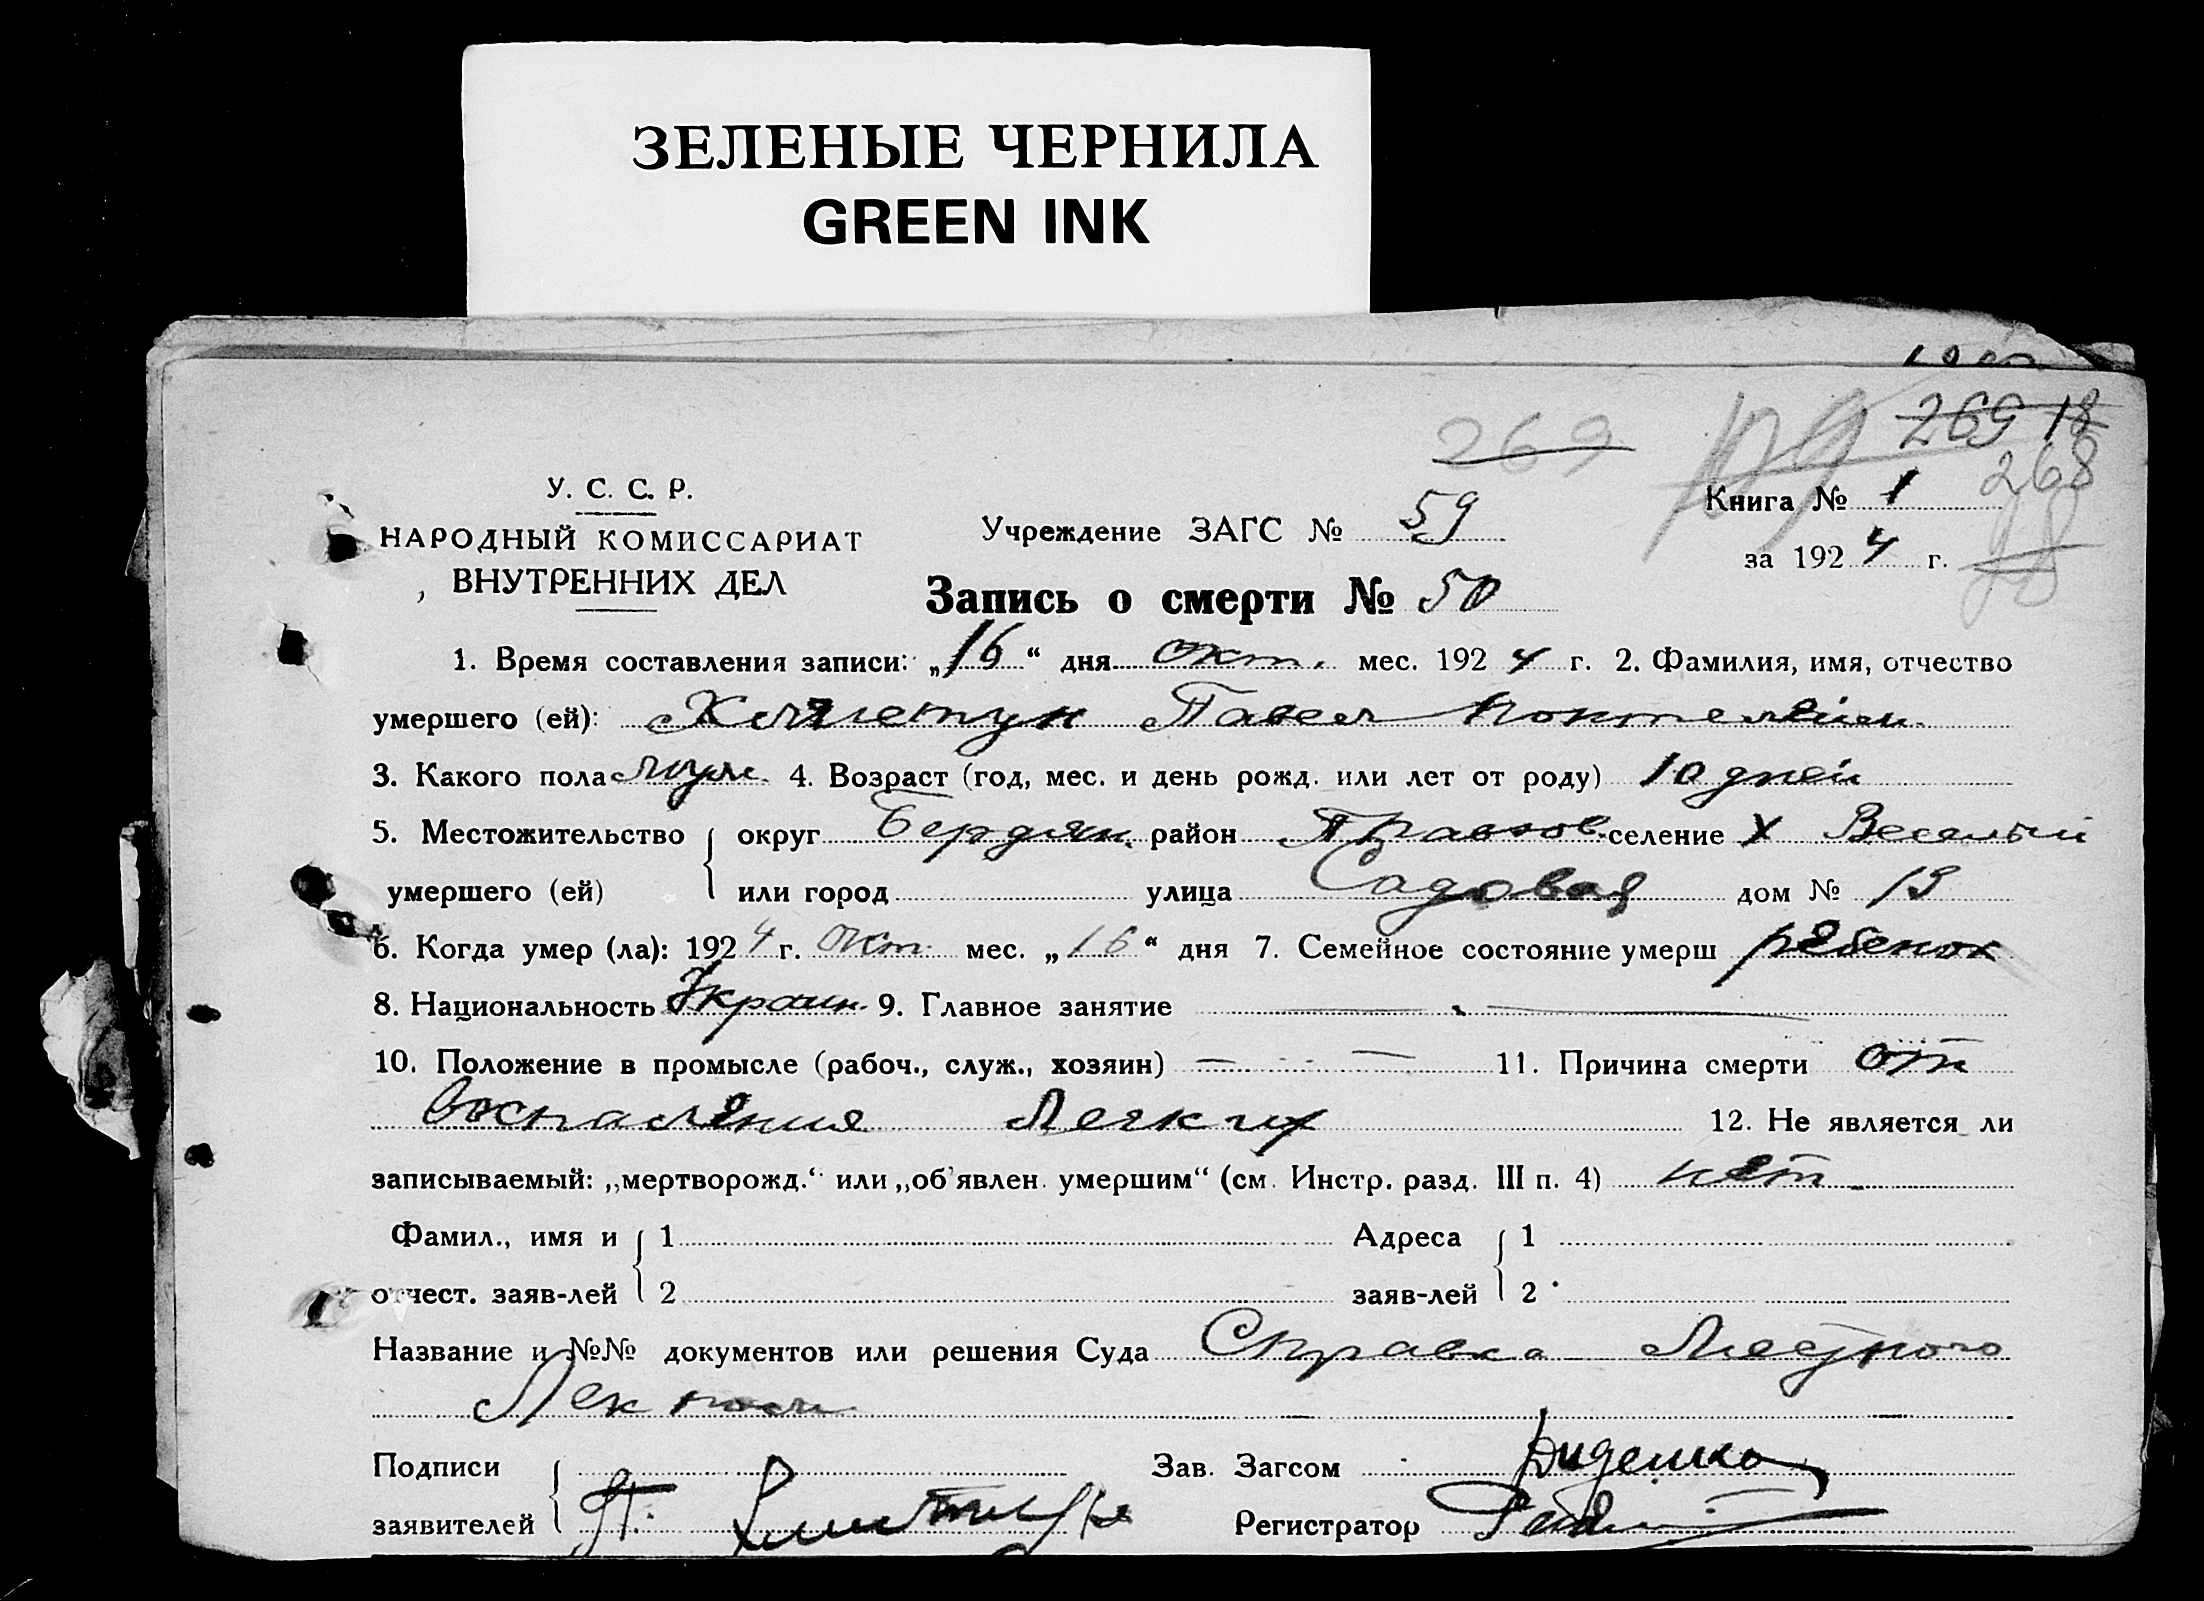 ЗЕЛЕНЫЕ ЧЕРНИЛА
GREEN INK
269 18
269
268
У. С. С. Р.
НАРОДНЫЙ КОМИССАРИАТ
ВНУТРЕННИХ ДЕЛ
Учреждение ЗАГС № 59
Книга № 1
за 1924 г.
Запись о смерти № 50
1. Время составления записи: „16“ дня окт. мес. 1924 г. 2. Фамилия, имя, отчество
умершего (ей): Павел
3. Какого пола муж. 4. Возраст (год, мес. и день рожд. или лет от роду) 10 дней
5. Местожительство округ Бердян. район селение х Веселый
умершего (ей) или город улица Садовая дом № 13
6. Когда умер (ла): 1924 г. окт. мес. „16“ дня 7. Семейное состояние умерш ребенок
8. Национальность Украин. 9. Главное занятие
10. Положение в промысле (рабоч., служ., хозяин) — — 11. Причина смерти от
воспаления легких 12. Не является ли
записываемый: „мертворожд.“ или „об'явлен. умершим“ (см. Инстр. разд. III п. 4) нет
Фамил., имя и 1 Адреса 1
отчест. заяв-лей 2 заяв-лей 2
Название и №№ документов или решения Суда Справка Местного
Лек
Подписи Зав. Загсом
заявителей Регистратор